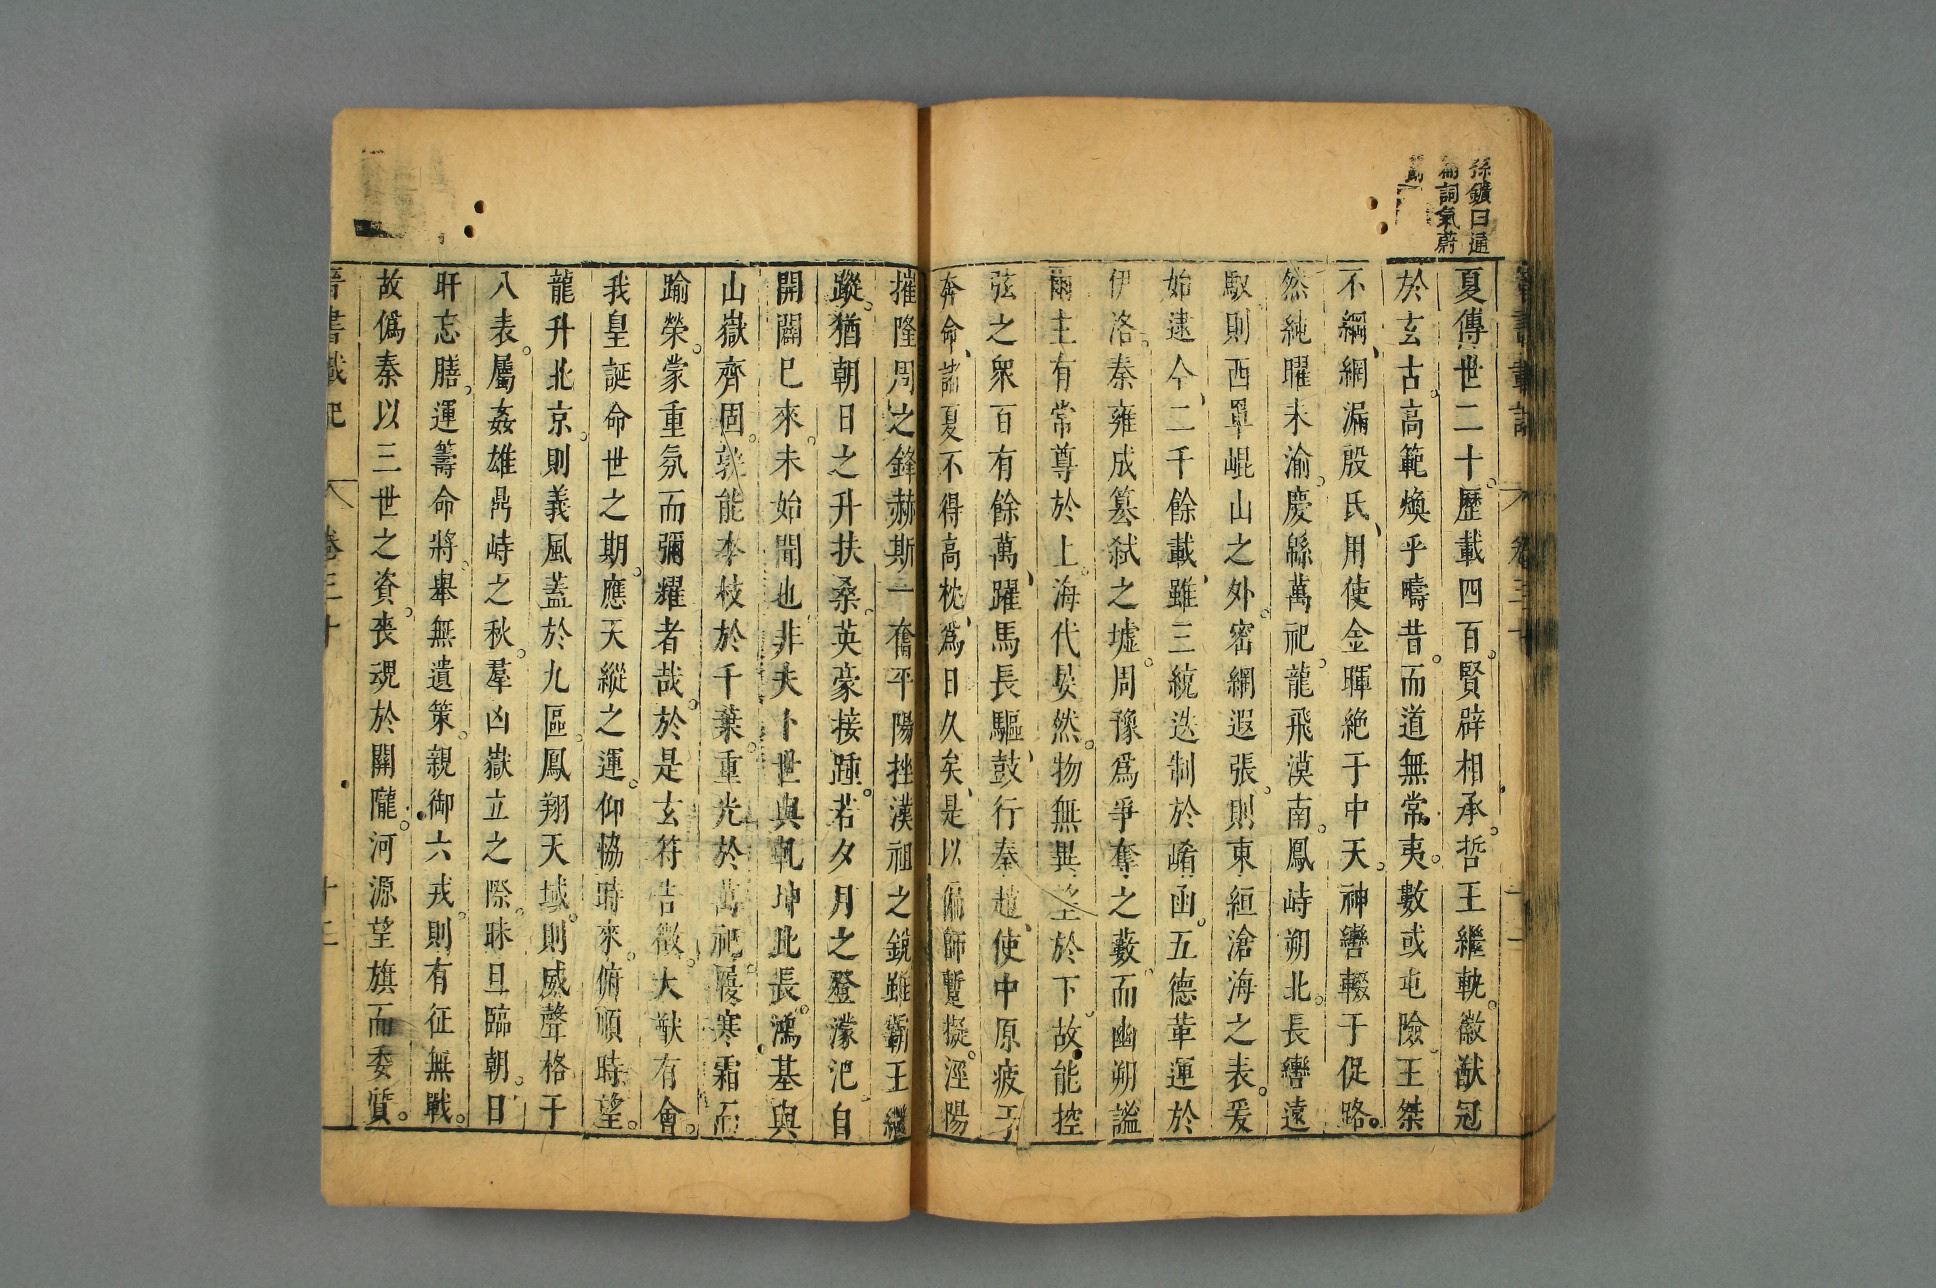 孫鑛曰通
篇詞氣蔚
夏傳世二十歷載四百賢辟相承哲王繼軌徽猷冠
於玄古高範煥乎疇昔而道無常夷數或屯險王桀
不綱網漏殷氏用使金暉絶于中天神轡輟于促路
然純曜未渝慶緜萬祀龍飛漠南鳳峙朔北長轡遠
馭則西罩崐山之外密網遐張則東絙滄海之表爰
始逮今二千餘載雖三統迭制於崤函五德革運於
伊洛秦雍成簒弑之墟周豫爲爭奪之藪而幽朔謐
爾主有常尊於上海代晏然物無異望於下故能控
弦之衆百有餘萬躍馬長驅鼓行秦趙使中原疲于
奔命諸夏不得高枕爲日久矣是以偏師暫擬涇陽
摧隆周之鋒赫斯一奮平陽挫漢祖之銳雖霸王繼
蹤猶朝日之升扶桑英豪接踵若夕月之登濛汜自
開闢已來未始聞也非夫卜世與乾坤比長鴻基與
山嶽齊固孰能本枝於千葉重光於萬祀履寒霜而
踰榮蒙重氛而彌耀者哉於是玄符告徵大猷有會
我皇誕命世之期應天縱之運仰協時來俯順時望
龍升北京則義風蓋於九區鳳翔天域則威聲格于
八表屬姦雄鼎峙之秋羣凶嶽立之際昧旦臨朝日
旰忘膳運籌命將舉無遺策親御六戎則有征無戰
故僞秦以三世之資喪魂於關隴河源望旗而委質
晉書載記 卷三十 十三